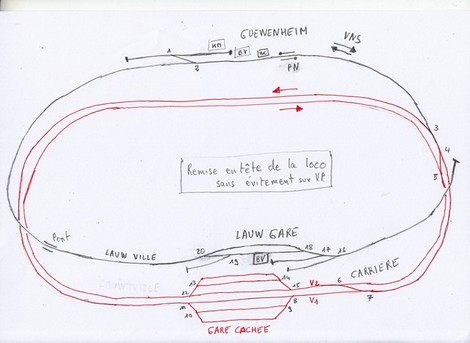 GUEWENHEIM
VNS
1
BV
2
PN
3
4
5
Remise en tête de la loco
sans évitement sur V.P.
Pont
LAUW VILLE
LAUW GARE
20
18
17
16
19
BV
CARRIERE
13
14
12
15
V2
6
7
11
8
V1
10
9
GARE CACHEE